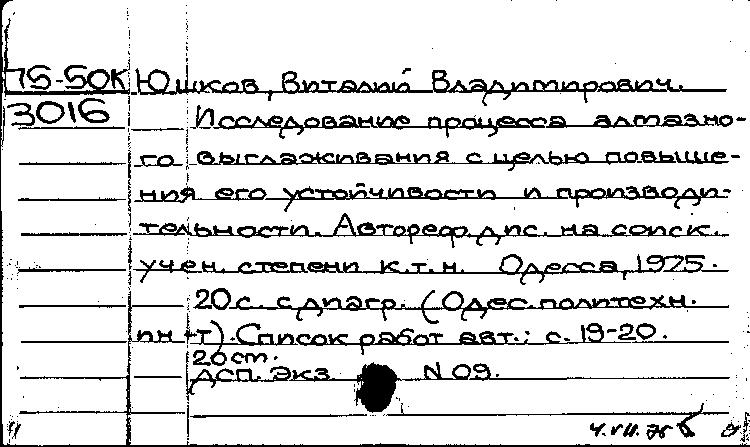 75-50К Юшков, Виталий Владимирович.
3016 Исследование процесса алмазно-
го выглаживания с целью повыше-
ния его устойчивости и производи-
тельности. Автореф. дис. на соиск.
учен. степени к.т.н. Одесса, 1975.
20 с. с диагр. (Одес. политехн.
ин-т). Список работ авт.: с. 19-20.
20 ст.
ДСП. Экз. N 09.
4.VII.75